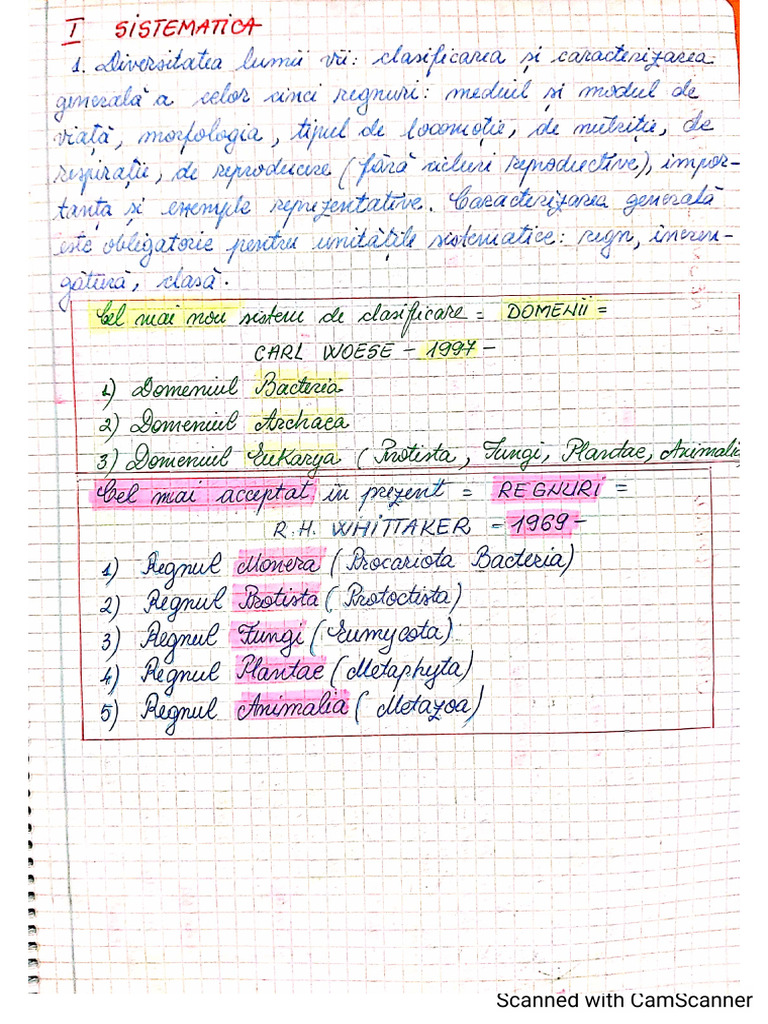 I SISTEMATICA
1. Diversitatea lumii vii: clasificarea și caracterizarea
generală a celor cinci regnuri: mediul și modul de
viață, morfologia, tipul de locomoție, de nutriție, de
respirație, de reproducere (fără cicluri reproductive), impor-
tanța și exemple reprezentative. Caracterizarea generală
este obligatorie pentru unitățile sistematice: regn, încren-
gătură, clasă.
Cel mai nou sistem de clasificare = DOMENII =
CARL WOESE - 1997 -
1) Domeniul Bacteria
2) Domeniul Archaea
3) Domeniul Eukarya (Protista, Fungi, Plantae, Animalia
Cel mai acceptat în prezent = REGNURI =
R.H. WHITTAKER - 1969 -
1) Regnul Monera (Procariota Bacteria)
2) Regnul Protista (Protoctista)
3) Regnul Fungi (Eumycota)
4) Regnul Plantae (Metaphyta)
5) Regnul Animalia (Metazoa)
Scanned with CamScanner